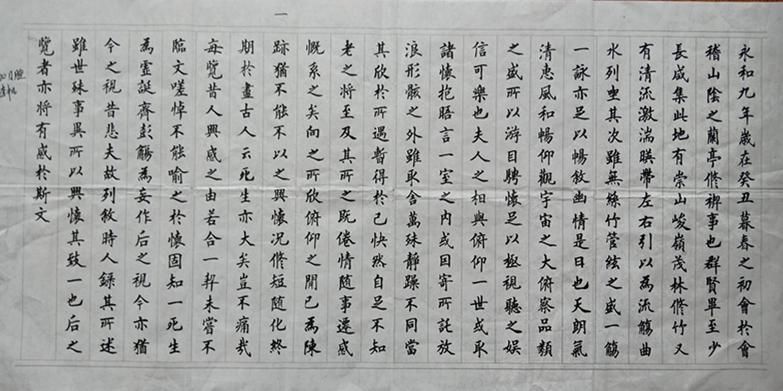 一
永和九年歲在癸丑暮春之初會於會
稽山陰之蘭亭修禊事也群賢畢至少
長咸集此地有崇山峻嶺茂林修竹又
有清流激湍暎帶左右引以為流觴曲
水列坐其次雖無絲竹管絃之盛一觴
一詠亦足以暢敘幽情是日也天朗氣
清惠風和暢仰觀宇宙之大俯察品類
之盛所以游目騁懷足以極視聽之娛
信可樂也夫人之相與俯仰一世或取
諸懷抱晤言一室之內或因寄所託放
浪形骸之外雖取舍萬殊靜躁不同當
其欣於所遇暫得於己快然自足不知
老之將至及其所之既倦情隨事遷感
慨系之矣向之所欣俯仰之閒已為陳
跡猶不能不以之興懷況修短隨化終
期於盡古人云死生亦大矣豈不痛哉
每覽昔人興感之由若合一契未嘗不
臨文嗟悼不能喻之於懷固知一死生
為虛誕齊彭觴為妄作后之視今亦猶
今之視昔悲夫故列敘時人錄其所述
雖世殊事異所以興懷其致一也后之
覽者亦將有感於斯文